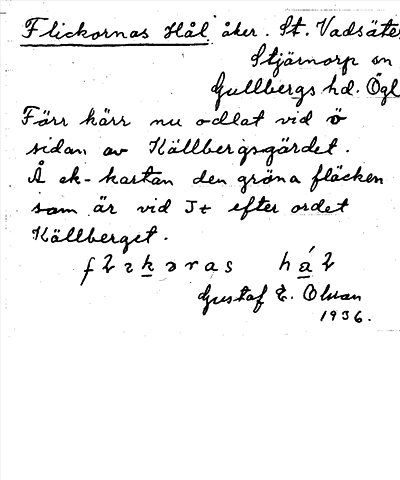 Flickornas Hål åker. St. Vadsäter
Stjärnorp sn
Gullbergs hd. Ögl
Förr kärr nu odlat vid ö
sidan av Källbergsgärdet.
Å ek-kartan den gröna fläcken
som är vid J+ efter ordet
Källberget.
Gustaf E. Olsson
1936.